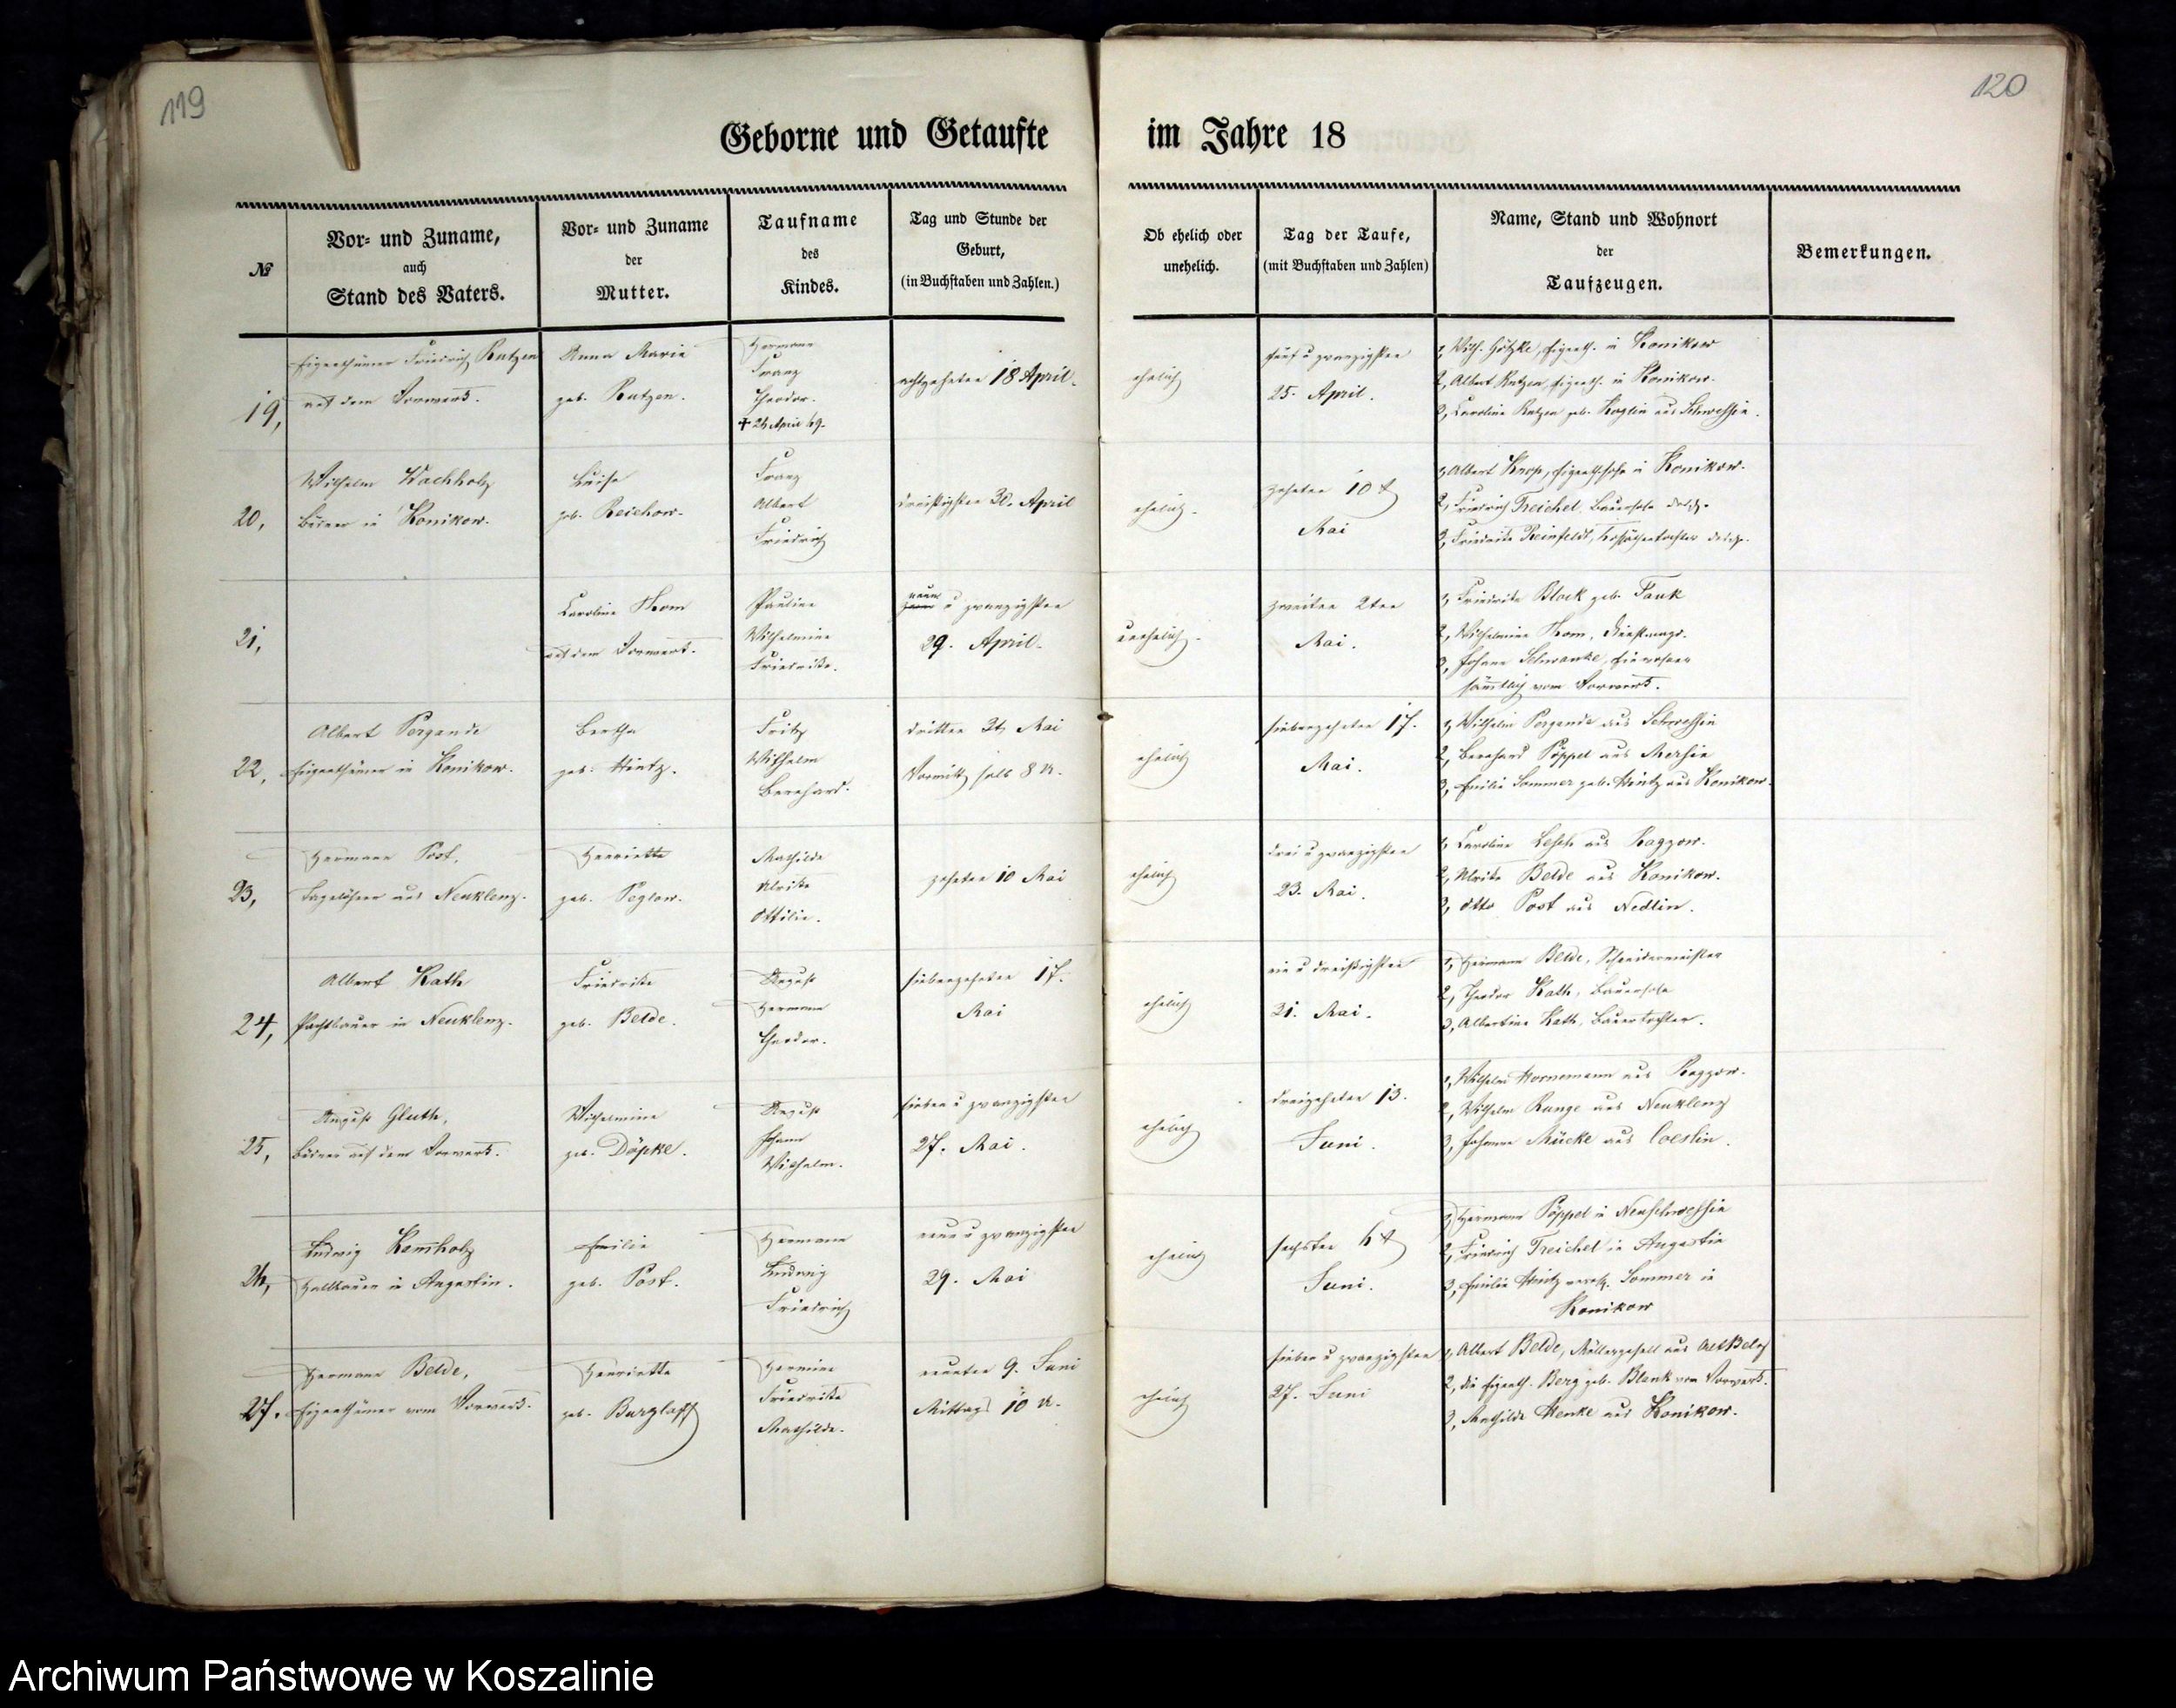 119
120
Geborne und Getaufte im Jahre 18
№
Vor- und Zuname,
auch
Stand des Vaters.
Vor- und Zuname
der
Mutter.
Taufname
des
Kindes.
Tag und Stunde der
Geburt,
(in Buchstaben und Zahlen.)
Ob ehelich oder
unehelich.
Tag der Taufe,
(mit Buchstaben und Zahlen)
Name, Stand und Wohnort
der
Taufzeugen.
Bemerkungen.
19,
Eigenthümer Friedrich Rutzen
auf dem Vorwerk.
Anna Marie
geb. Rutzen.
Hermann
Franz
Theodor.
achtzehnten 18 April.
ehelich
fünf u zwanzigsten
25. April.
1, Wilh. Götzke, Eigenth. in Konikow
2, Albert Rutzen, Eigenth. in Konikow.
3, Caroline Rutzen geb. Koglin aus Schwessin.
20,
Wilhelm Wachholz
Büdner in Konikow.
Luise
geb. Reichow.
Franz
Albert
Friedrich
dreißigsten 30. April
ehelich.
zehnten 10 t
Mai
1, Albert Knop, Eigenth.sohn in Konikow.
2, Friedrich Treichel, Bauersohn
3, Friederike Reinfeldt,
21,
Caroline Thom
auf dem Vorwerk.
Pauline
Wilhelmine
Friederike.
neun u zwanzigsten
29. April.
unehelich.
zweiten 2ten
Mai.
1, Friederike Block geb. Tauk
2, Wilhelmine Thom, Dienstmagd.
3, Johann Schwanke, Einwohner
sämtlich vom Vorwerk.
22,
Albert Pergande
Eigenthümer in Konikow.
Bertha
geb. Hintz.
Fritz
Wilhelm
Bernhard.
dritten 3t Mai
Vormitt halb 8 U.
ehelich
siebenzehnten 17.
Mai.
1, Wilhelm Pergande aus Schwessin
2, Bernhard Pöppel aus Mersin
3, Emilie Sommer geb. Hintz aus Konikow.
23,
Hermann Post,
Tagelöhner aus Neuklenz.
Henriette
geb. Peglow.
Mathilde
Ulrike
Ottilie.
zehnten 10 Mai
ehelich
drei u zwanzigsten
23. Mai.
1, Caroline Lesch aus Roggow.
2, Ulrike Belde aus Konikow.
3, Otto Post aus Nedlin.
24,
Albert Rath
Pachtbauer in Neuklenz.
Friederike
geb. Belde.
August
Hermann
Theodor.
siebenzehnten 17.
Mai
ehelich
ein u dreißigsten
31. Mai.
1, Hermann Belde, Schneidermeister
2, Theodor Rath, Bauersohn
3, Albertine Rath, Bauertochter.
25,
August Gluth,
Büdner auf dem Vorwerk.
Wilhelmine
geb. Döpke.
August
Johann
Wilhelm.
sieben u zwanzigsten
27. Mai.
ehelich
dreizehnten 13.
Juni.
1, Wilhelm Hornemann aus Roggow.
2, Wilhelm Runge aus Neuklenz
3, Johanna Mücke aus Coeslin.
26,
Ludwig Kem̄holz
Halbbauer in Augustin.
Emilie
geb. Post.
Hermann
Ludwig
Friedrich
neun u zwanzigsten
29. Mai
ehelich
sechsten 6 t
Juni.
1, Hermann Pöppel in Neuschwessin
2, Friedrich Treichel in Augustin
3, Emilie Hintz verehl. Sommer in
Konikow
27.
Hermann Belde,
Eigenthümer vom Vorwerk.
Henriette
geb. Burzlaff
Hermine
Friederike
Mathilde.
neunten 9. Juni
Mittags 10 U.
ehelich
sieben u zwanzigsten
27. Juni
1, Albert Belde, Müllergesell aus Alt Belz
2, die Eigenth. Berg geb. Blank vom Vorwerk.
3, Mathilde Henke aus Konikow.
Archiwum Państwowe w Koszalinie